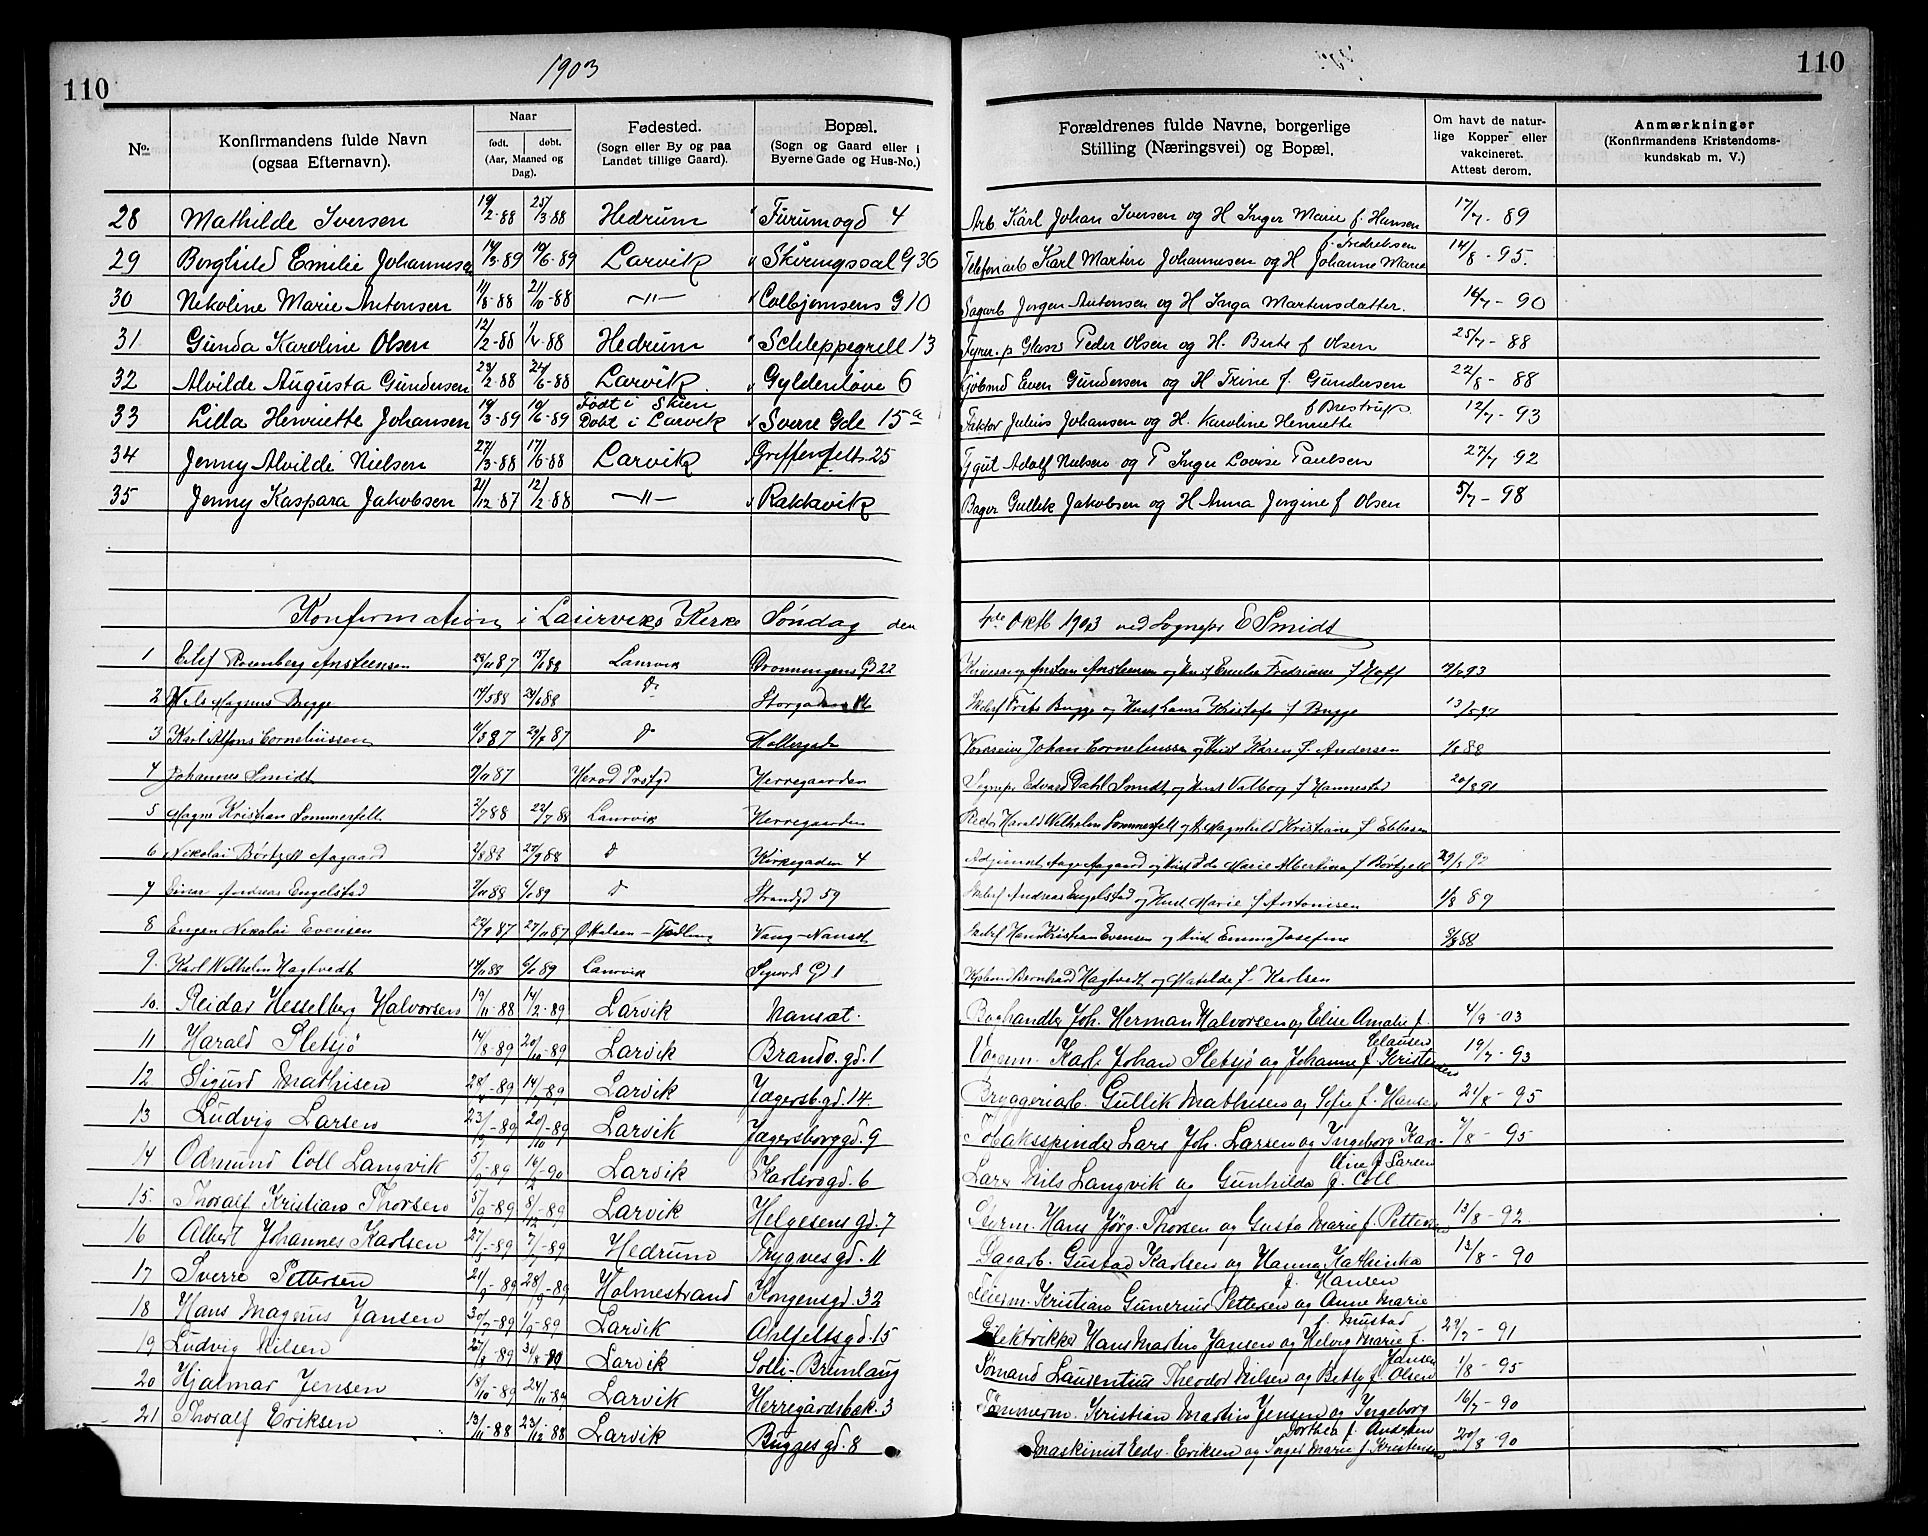 110
1903
110
No. Konfirmandens fulde Navn (ogsaa Efternavn). Naar født. døbt. (Aar, Maaned og Dag). Fødested. (Sogn eller By og paa Landet tillige Gaard). Bopæl. (Sogn og Gaard eller i Byerne Gade og Hus-No.) Forældrenes fulde Navne, borgerlige Stilling (Næringsvei) og Bopæl. Om havt de naturlige Kopper eller vakcineret. Attest derom. Anmærkninger (Konfirmandens Kristendomskundskab m. V.)
28 Mathilde Iversen 19/2-88 25/3-88 Hedrum Furumogd 4 Arb Karl Johan Iversen og H Inger Marie f. Hansen 17/7-89
29 Borghild Emilie Johannesen 14/3-89 10/6-89 Larvik Skiringssal G 36 Telefonarb Karl Martin Johannesen og H Johanne Marie f. Fredriksen 14/8-95.
30 Nikoline Marie Antonsen 14/8-88 21/10-88 -"- Colbjørnsens G 10 Sagarb Jørgen Antonsen og H Inga Martinsdatter. 16/7-90
31 Gunda Karoline Olsen 12/2-88 Hedrum Schleppegrell 13 Fyrer. p Glasv Peder Olsen og H. Berte f Olsen 25/7-88
32 Alvilde Augusta Gundersen 23/2-88 24/6-88 Larvik. Gyldenløve 6 Kjøbmd Even Gundersen og H Trine f. Gundersen 22/8-88
33 Lilla Henriette Johansen 19/3-89 10/6-89 Født i Skien Døbt i Larvik Sverre Gde 15a Faktor Julius Johansen og H. Karoline Henriette f Brestrup. 12/7-93
34 Jenny Alvilde Nielsen 27/3-88 17/6-88 Larvik Griffenfelts 25 Adolf Nielsen og P Inger Lovise Paulsen 27/7 92
35 Jenny Kaspara Jakobsen 21/12-87 12/2-88 -"- Rakkavik Bager Gullik Jakobsen og H Anna Jørgine f Olsen 5/7-98
Konfirmation i Laurviks Kirke Søndag den 4de Oktb 1903 ved Sognepr E Smidt
1 Eilif Rosenberg Ansteensen 29/11 87 15/1 88 Laurvik Dronningens G 22 Ansteen Ansteensen og Hust Emilie Fredrikke f Hoff
2 Nils Magnus Bugge 17/5 88 24/6 88 Do Storgaden Skibsf Frits Bugge og Hust Laura f Bugge
3 Karl Alfons Corneliussen 11/5 87 Do Møllergade Johan Corneliussen og Hust Karen f. Andersen 1/8 88
4 Johannes Smidt 11/11 87 Herød Prstgd Herregaarden Sognepr Edvard Dahl Smidt og Hust Valborg f Hannestad 20/8 91
5 Magne Kristian Sommerfelt 3/7 88 22/7 88 Laurvik Herregaarden Rector Harald Wilhelm Sommerfelt og H. Magnhild Kristiane f Ebbesen
6 Nikolai Børtzell Aagaard 2/8 88 27/9 88 Do Kirkegaden 4 Adjunct Aage Aagaard og Hust Ida Marie Albertina f Børtzell
7 Einar Andreas Engelstad 9/11 88 6/1 89 Do Strandgd 59 Skibsf Andreas Engelstad og Hust Marie f Antonisen 1/8 89
8 Eugen Nikolai Evensen 22/9 87 27/11 87 Vang-Nanset Skibsf Hans Kristian Evensen og Hust Emma Josefine 8/8 88
9. Karl Wilhelm Hagtvedt 14/11 88 6/1 89 Laurvik Sigurds G 1 Kjøbmd Bernhard Hagtvedt og Matilde f. Karlsen
10. Reidar Hesselberg Halvorsen 19/11-88 14/2-89 Larvik Nanset. Boghandler Joh. Herman Halvorsen og Elise Amalie f. Clausen 4/9-03
11 Harald Sletsjø 14/8-89 20/10-89 Larvik Brandv. gd. 1 Vognm. Karl Johan Sletsjø og Johanne f. Kristensen 19/7-93
12 Sigurd Mathisen Larvik Jægersb. gd. 14. Bryggeriarb. Gullik Mathisen og Sofie f. Hansen 21/8-95
13 Ludvig Larsen Larvik Jægersborggd. 9 Tobaksspinder Lars Joh. Larsen og Ingeborg Karoline f Larsen 7/8-95
14 Odmund Coll Langvik Larvik Karlsrogd. 6 Nils Langvik og Gunhilda f. Coll
15 Thoralf Kristian Thorsen Larvik Helgesens gd. 7 Styrm. Hans Jørg. Thorsen og Gusta Marie f. Pettersen 13/8-92.
16 Albert Johannes Karlsen Hedrum Trygves gd. 11 Sagarb. Gustav Karlsen og Hanna Kathinka f. Hansen 13/8-90
17 Sverre Pettersen Holmestrand Kongensgd. 32 Feierm. Kristian Gunerius Pettersen og Anne Marie f. Mustad
18 Hans Magnus Jansen Larvik Ahlfeltsgd. 15 Elektriker Hans Martin Jansen og Helvig Marie f. Jansen 27/7-91
19 Ludvig Nilsen Larvik Solli-Brunlaug Sømand Laurentius Theodor Nilsen og Betty f Olsen 1/8-95
20 Hjalmar Jensen 18/10-89 24/11-89 Larvik Herregårdsbak. 3 Tømmerm. Kristian Martin Jensen og Ingeborg Dorthea f. Andersen 16/7-90
21 Thoralf Eriksen 13/11-88 23/12-88 Larvik Bugges gd. 8 Maskinist Edv. Eriksen og Inger Marie f. Kristensen 20/8-90